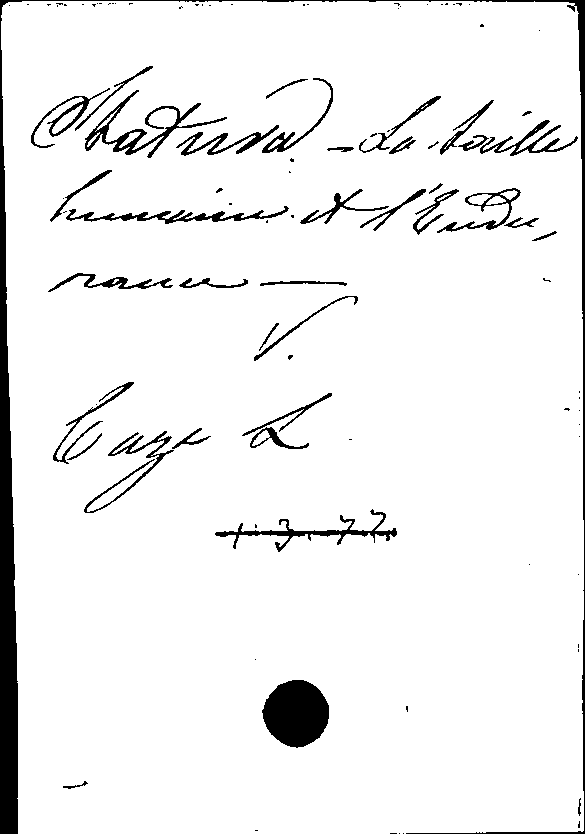 Statura. - La taille
humaine et l'Endu,
rance —
V.
Caze L
13.77.